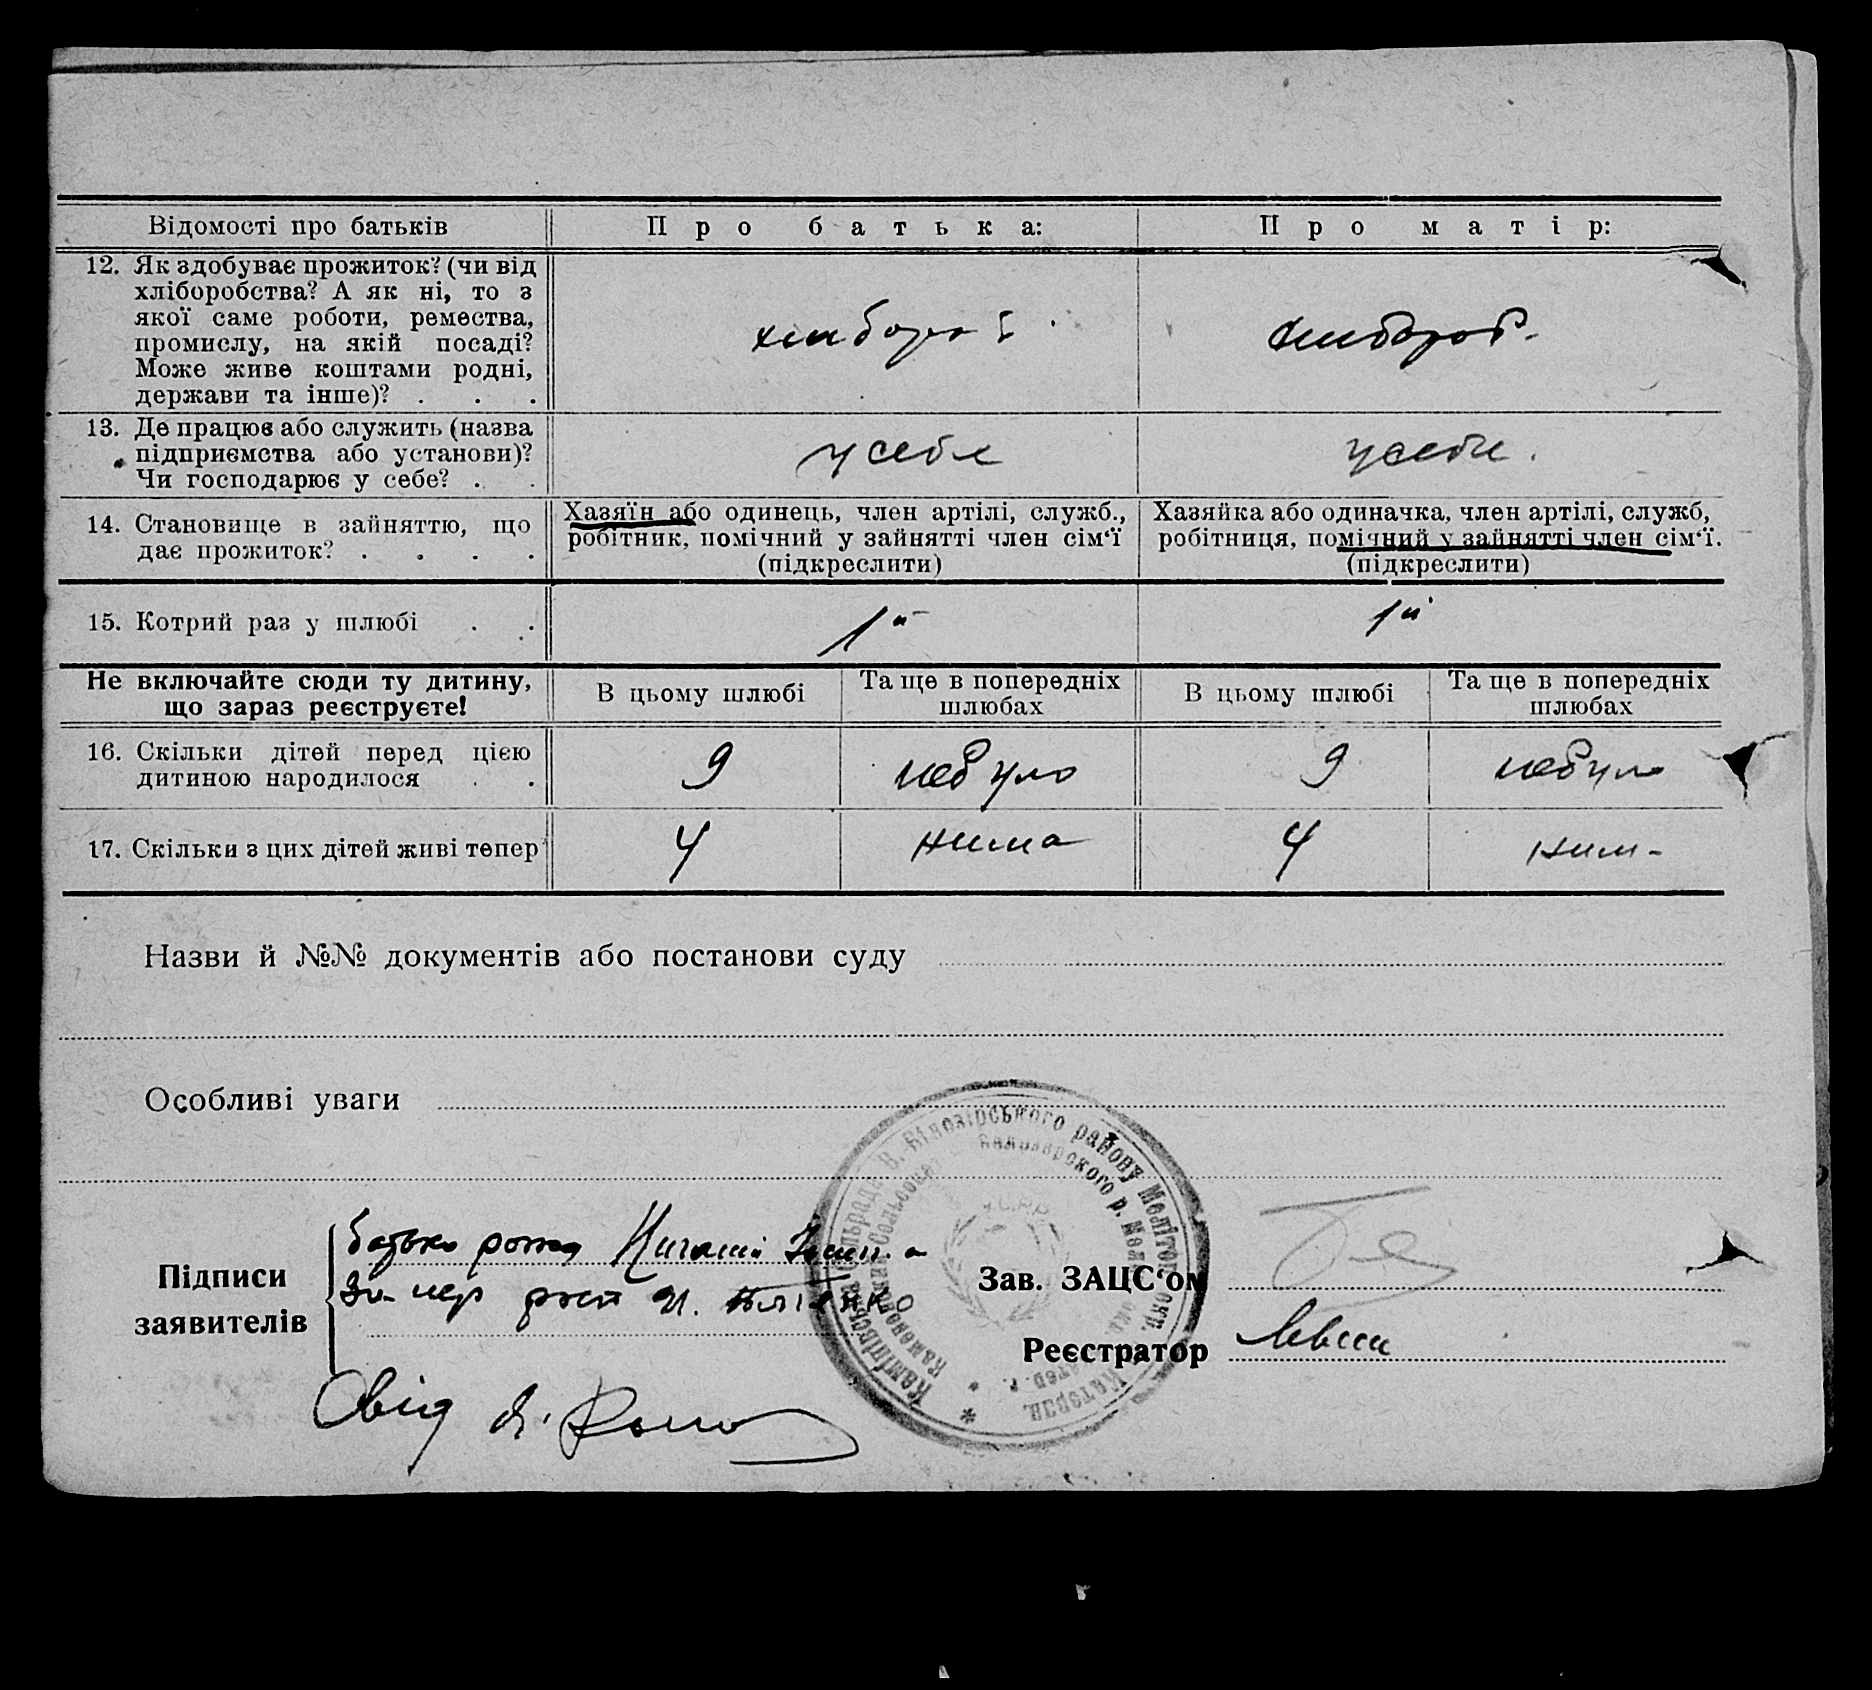 Відомості про батьків
Про батька:
Про матір:
12. Як здобуває прожиток? (чи від
хліборобства? А як ні, то з
якої саме роботи, ремества,
промислу, на якій посаді?
Може живе коштами родні,
держави та інше)? . . .
хлибороб
хлибороб.
13. Де працює або служить (назва
підприємства або установи)?
Чи господарює у себе? . .
у себе
у себе.
14. Становище в зайняттю, що
дає прожиток? . . . .
Хазяїн або одинець, член артілі, служб.,
робітник, помічний у зайнятті член сім'ї
(підкреслити)
Хазяйка або одиначка, член артілі, служб,
робітниця, помічний у зайнятті член сім'ї.
(підкреслити)
15. Котрий раз у шлюбі . .
1й
1й
Не включайте сюди ту дитину,
що зараз реєструєте!
В цьому шлюбі
Та ще в попередніх
шлюбах
В цьому шлюбі
Та ще в попередніх
шлюбах
16. Скільки дітей перед цією
дитиною народилося . .
9
небуло
9
небуло
17. Скільки з цих дітей живі тепер
4
нима
4
ним-
Назви й №№ документів або постанови суду
Особливі уваги
Підписи
заявителів
батько
За нер
Свід
Зав. ЗАЦС'ом
Реєстратор
району Меліто